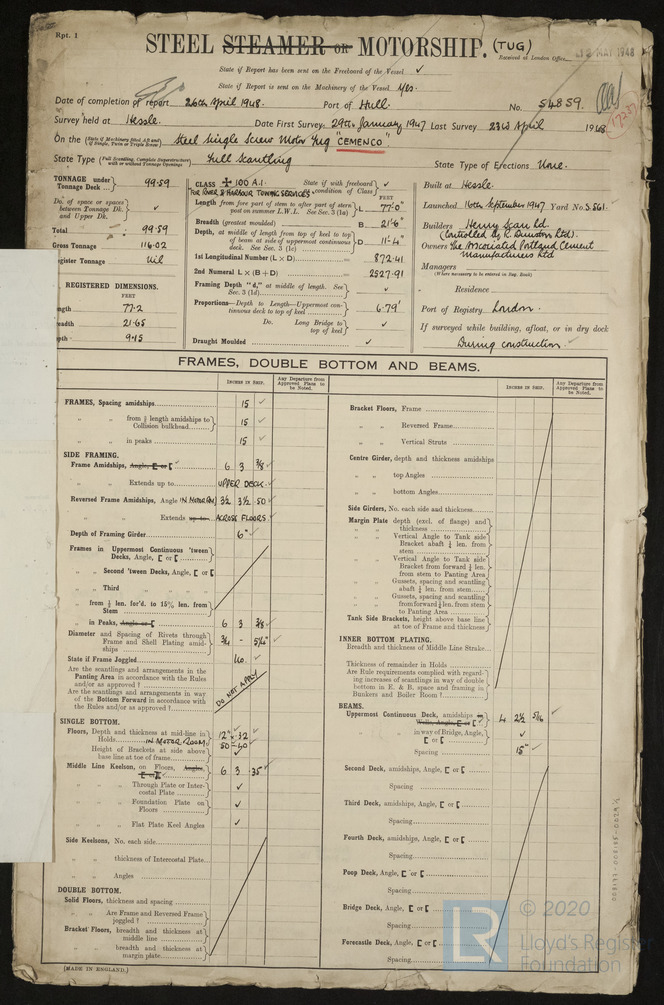 Rpt. 1
STEEL STEAMER OR MOTORSHIP. (TUG)
Received at London Office 12 MAY 1948
State if Report has been sent on the Freeboard of the Vessel ✓
State if Report is sent on the Machinery of the Vessel Yes.
Date of completion of report 26th April 1948. Port of Hull. No. 54859.
Survey held at Hessle. Date First Survey 29th January 1947 Last Survey 23rd April 1948.
On the (State if Machinery fitted Aft and if Single, Twin or Triple Screw) Steel Single Screw Motor Tug "CEMENCO"
State Type (Full Scantling, Complete Superstructure with or without Tonnage Openings) Full Scantling State Type of Erections None.
TONNAGE under Tonnage Deck ... 99.59
Do. of space or spaces between Tonnage Dk. and Upper Dk. ✓
Total 99.59
Gross Tonnage 116.02
Register Tonnage Nil
REGISTERED DIMENSIONS.
FEET
Length 77.2
Breadth 21.65
Depth 9.15
CLASS ✠ 100 A.1. State if with freeboard condition of Class ✓
"FOR RIVER & HARBOUR TOWING SERVICES"
FEET
Length from fore part of stem to after part of stern post on summer L.W.L. See Sec. 3 (1a) L 77'-0"
Breadth (greatest moulded) B 21'-6"
Depth, at middle of length from top of keel to top of beam at side of uppermost continuous deck. See Sec. 3 (1c) D 11'-4"
1st Longitudinal Number (L × D) 872.41
2nd Numeral L × (B + D) 2527.91
Framing Depth "d," at middle of length. See Sec. 3 (1d) ✓
Proportions—Depth to Length—Uppermost continuous deck to top of keel 6.79'
Do. Long Bridge to top of keel ✓
Draught Moulded ✓
Built at Hessle.
Launched 16th September 1947 Yard No. S.561.
Builders Henry Scarr Ld.
(Controlled by R. Dunston Ltd).
Owners The Associated Portland Cement Manufacturers Ltd
Managers
(Where necessary to be entered in Reg. Book)
Residence
Port of Registry London.
If surveyed while building, afloat, or in dry dock
During construction.
FRAMES, DOUBLE BOTTOM AND BEAMS.
INCHES IN SHIP. Any Departure from Approved Plans to be Noted. INCHES IN SHIP. Any Departure from Approved Plans to be Noted.
FRAMES, Spacing amidships 15 ✓
" " from ⅗ length amidships to Collision bulkhead 15 ✓
" " in peaks 15 ✓
SIDE FRAMING.
Frame Amidships, Angle, [ or [ 6 3 3/8 ✓
" " Extends up to UPPER DECK. ✓
Reversed Frame Amidships, Angle IN MOTOR RM. 3½ 3½ .50 ✓
" " Extends up to ACROSS FLOORS. ✓
Depth of Framing Girder 6" ✓
Frames in Uppermost Continuous 'tween Decks, Angle, [ or [
" " Second 'tween Decks, Angle, [ or [
" " Third " "
" " from ⅗ len. for'd. to 15% len. from Stem
" in Peaks, Angle or [ 6 3 3/8 ✓
Diameter and Spacing of Rivets through Frame and Shell Plating amidships ¾ - 5¼" ✓
State if Frame Joggled No. ✓
Are the scantlings and arrangements in the Panting Area in accordance with the Rules and/or as approved ? DO NOT APPLY
Are the scantlings and arrangements in way of the Bottom Forward in accordance with the Rules and/or as approved ?
SINGLE BOTTOM.
Floors, Depth and thickness at mid-line in Holds 12" × .32 ✓
IN MOTOR ROOM. .50 - .40 ✓
Height of Brackets at side above base at toe of frame ✓
Middle Line Keelson, on Floors, Angles, [ or [ 6 3 .35 ✓
" " Through Plate or Intercostal Plate ✓
" " Foundation Plate on Floors ✓
" " Flat Plate Keel Angles ✓
Side Keelsons, No. each side
" " thickness of Intercostal Plate
" " Angles
DOUBLE BOTTOM.
Solid Floors, thickness and spacing
" " Are Frame and Reversed Frame joggled ?
Bracket Floors, breadth and thickness at middle line
" " breadth and thickness at margin plate
Bracket Floors, Frame
" " Reversed Frame
" " Vertical Struts
Centre Girder, depth and thickness amidships
" " top Angles
" " bottom Angles
Side Girders, No. each side and thickness
Margin Plate depth (excl. of flange) and thickness
" " Vertical Angle to Tank side Bracket abaft ¼ len. from stem
" " Vertical Angle to Tank side Bracket from forward ¼ len. from stem to Panting Area
" " Gussets, spacing and scantling abaft ¼ len. from stem
" " Gussets, spacing and scantling from forward ¼ len. from stem to Panting Area
Tank Side Brackets, height above base line at toe of Frame and thickness
INNER BOTTOM PLATING.
Breadth and thickness of Middle Line Strake
Thickness of remainder in Holds
Are Rule requirements complied with regarding increases of scantlings in way of double bottom in E. & B. space and framing in Bunkers and Boiler Room ?
BEAMS.
Uppermost Continuous Deck, amidships in Wells, Angle, [ or [ 4 2½ 5/16 ✓
" " in way of Bridge, Angle, [ or [ ✓
" " Spacing 15" ✓
Second Deck, amidships, Angle, [ or [
Spacing
Third Deck, amidships, Angle, [ or [
Spacing
Fourth Deck, amidships, Angle, [ or [
Spacing
Poop Deck, Angle, [ or [
Spacing
Bridge Deck, Angle, [ or [
Spacing
Forecastle Deck, Angle, [ or [
Spacing
(MADE IN ENGLAND.)
LR
© 2020
Lloyd's Register
Foundation